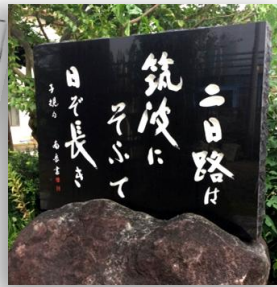 二日路は
筑波に
そふて
日ぞ長き
子規句